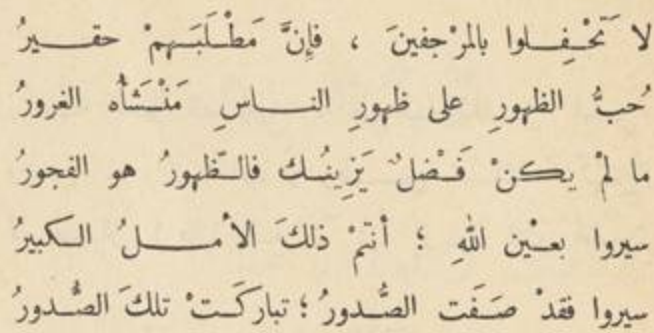 لا تَحْفِلوا بالمرْجفينَ ، فإنَّ مَطْلَبَهمْ حقيرُ
حُبُّ الظهورِ على ظهورِ الناسِ مَنْشَأُه الغرورُ
ما لمْ يكنْ فَضْلٌ يَزِينُك فالظّهورُ هو الفجورُ
سيروا بعيْن اللهِ ؛ أنتمْ ذلكَ الأمـلُ الكبيرُ
سيروا فقدْ صَفَت الصُّدورُ ؛ تباركَتْ تلكَ الصُّدورُ